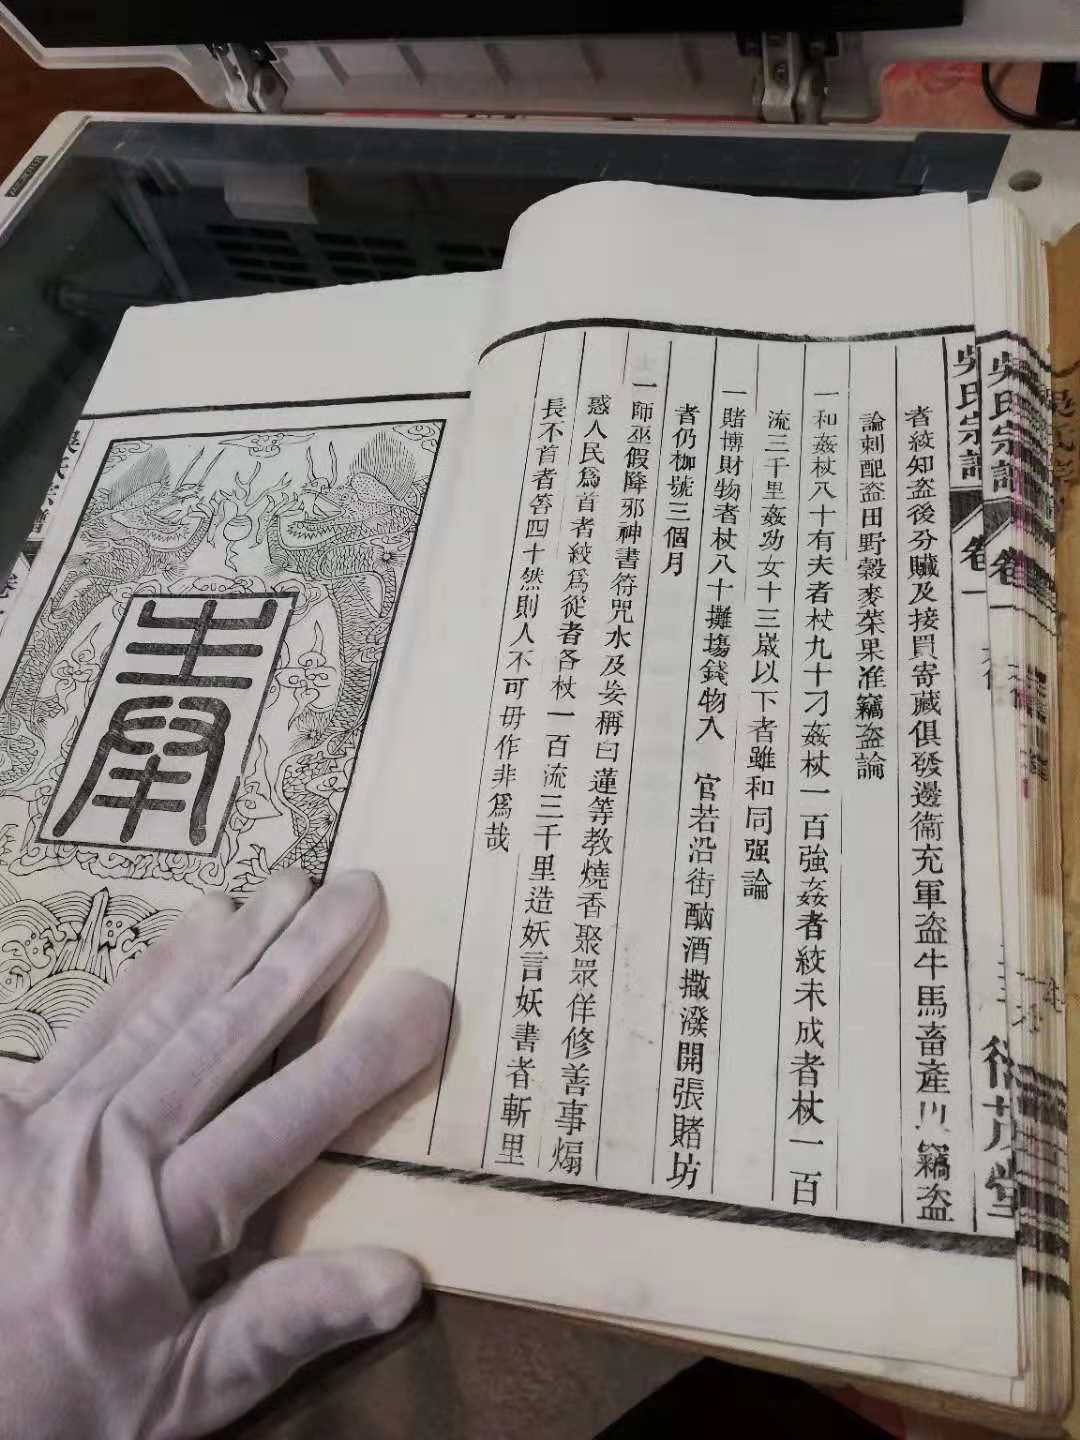 吳氏宗譜
卷一
吳氏宗譜
卷一
茂堂
者絞知盜後分贓及接買寄藏俱發邊衞充軍盜牛馬畜產以竊盜
論刺配盜田野穀麥菜果准竊盜論
一和姦杖八十有夫者杖九十刁姦杖一百強姦者絞未成者杖一百
流三千里姦幼女十三嵗以下者雖和同强論
一賭博財物者杖八十攤塲錢物入 官若沿街酗酒撒潑開張賭坊
者仍枷號三個月
一師巫假降邪神書符咒水及妄稱白蓮等教燒香聚眾佯修善事煽
惑人民爲首者絞爲從者各杖一百流三千里造妖言妖書者斬里
長不首者笞四十然則人不可毋作非爲哉